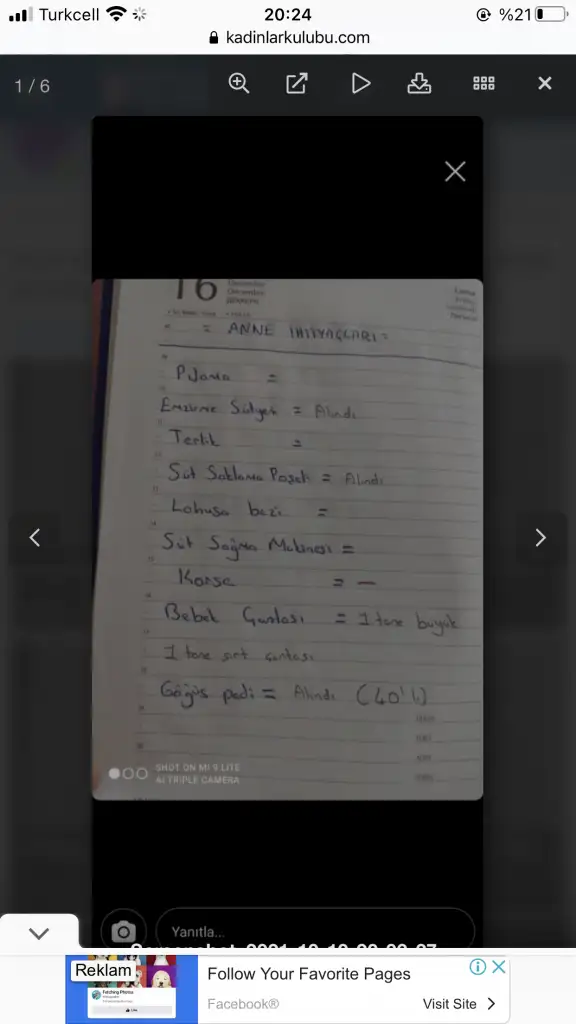 Turkcell 20:24 %21
kadinlarkulubu.com
1 / 6
16
= ANNE İHTİYAÇLARI =
Pijama =
Emzirme Sütyeni = Alındı
Terlik =
Süt Saklama Poşeti = Alındı
Lohusa bezi =
Süt Sağma Makinesi =
Korse = —
Bebek Çantası = 1 tane büyük
1 tane sırt çantası
Göğüs pedi = Alındı (40'lı)
SHOT ON MI 9 LITE
AI TRIPLE CAMERA
Yanıtla...
Reklam
Follow Your Favorite Pages
Facebook®
Visit Site